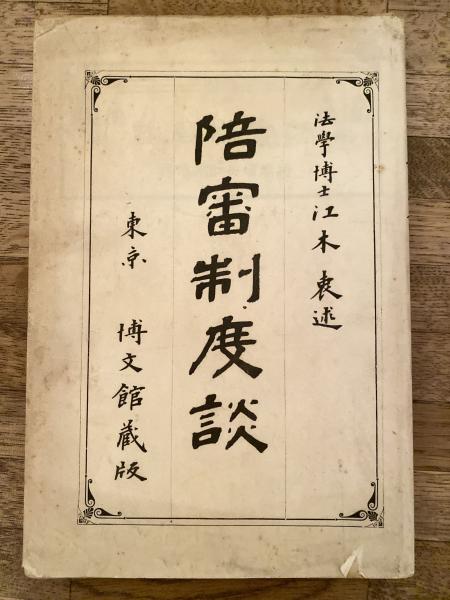 法學博士江木衷述
陪審制度談
東京 博文館蔵版